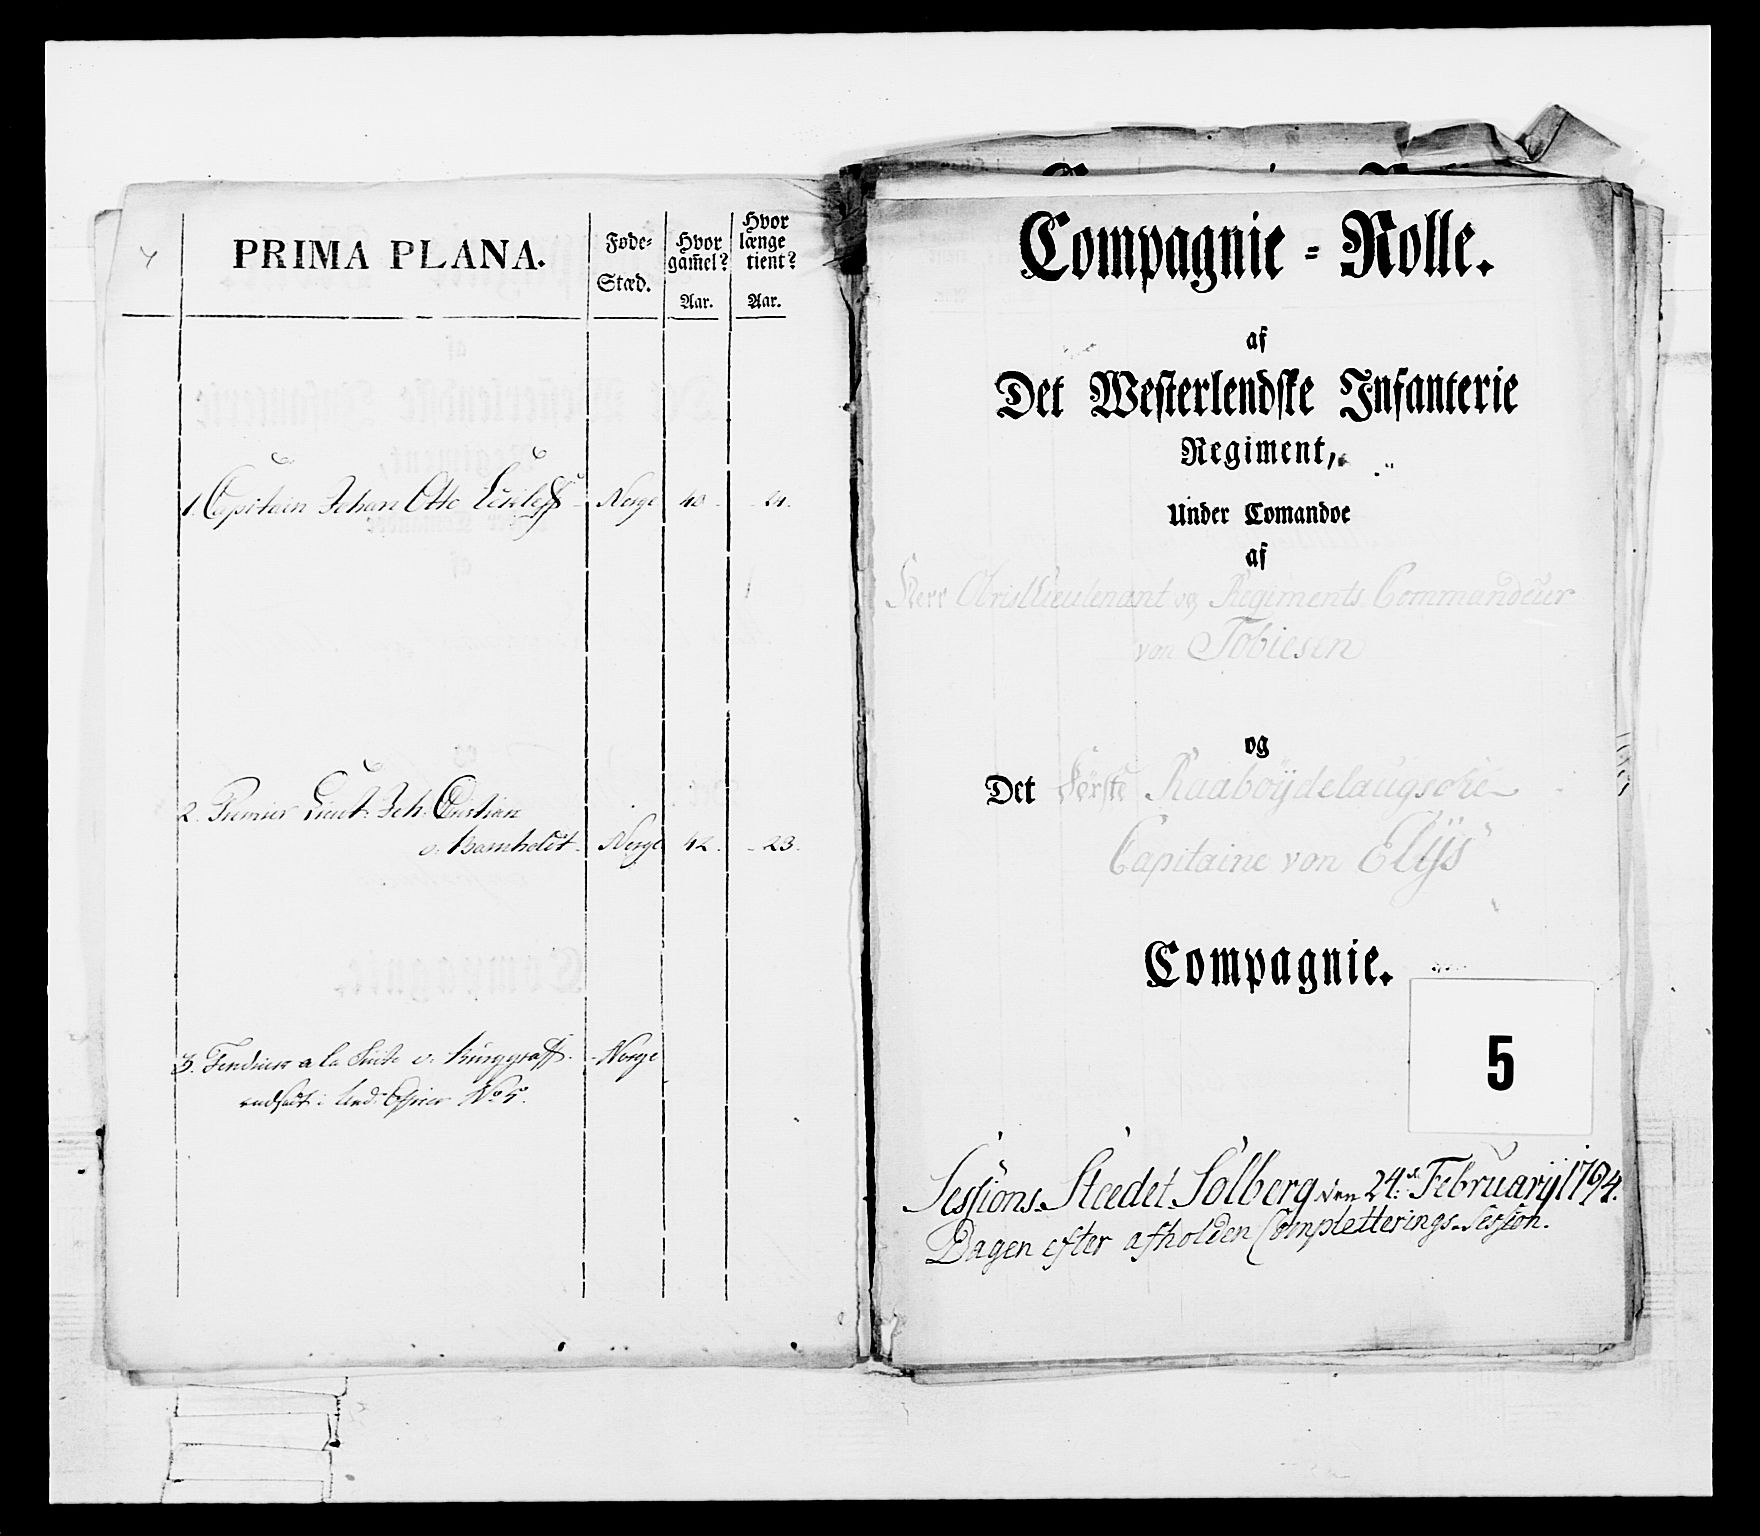 4
PRIMA PLANA.
Føde-
Stæd.
Hvor
gam̄el?
Aar.
Hvor
længe
tient?
Aar.
1. Capitain Johan Otto Norge 40 24.
2. Premier Lieut: Joh: Christian
v: Barnholdt Norge 42. 23.
3. Fendrich a la Suite v: Kruggraff. Norge
indsadt i Und: Officier No 5.
Compagnie-Rolle.
af
Det Westerlendske Infanterie
Regiment,
Under Comandoe
af
Herr Obristlieutenant og Regiments Commandeur
von Tobiesen
og
Det Første Raabøÿdelaugsche
Capitaine von Elÿs
Compagnie.
5
Sessions Stædet Solberg den 24de Februarÿ 1794.
Dagen efter afholden Completterings-Session.